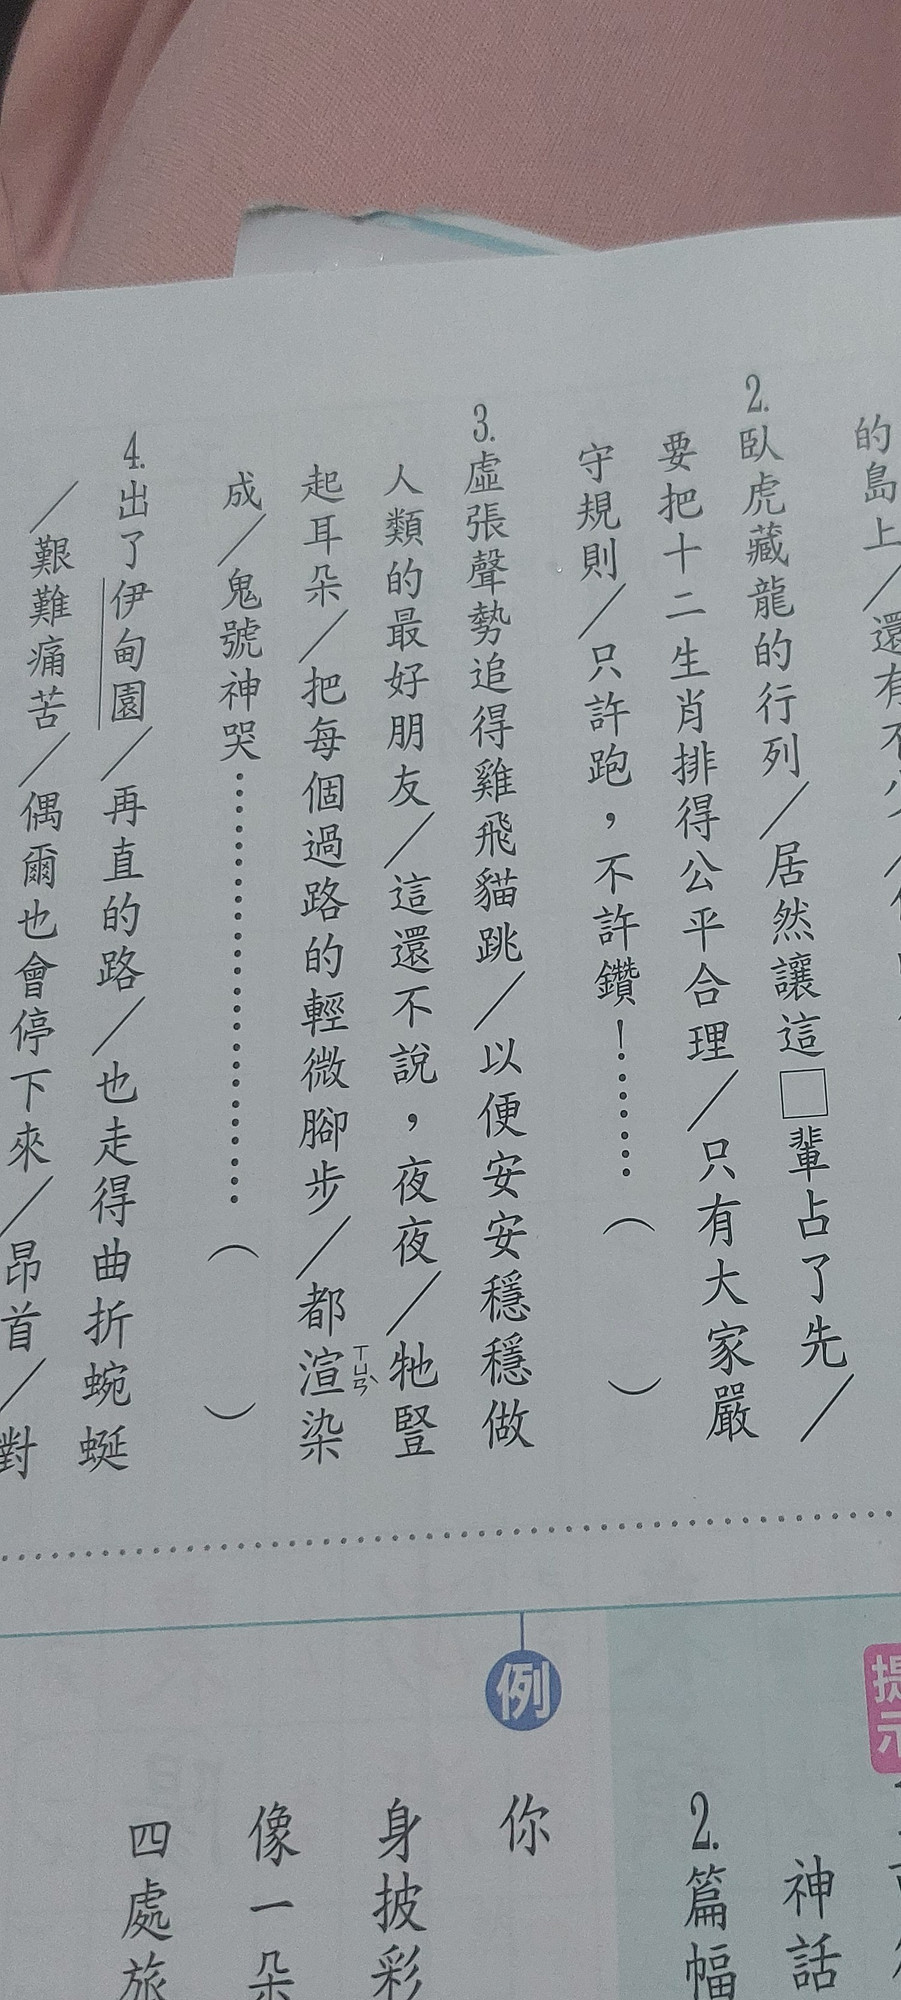 的島上／還有不
2.臥虎藏龍的行列／居然讓這□輩占了先／
要把十二生肖排得公平合理／只有大家嚴
守規則／只許跑，不許鑽！……（　　）
3.虛張聲勢追得雞飛貓跳／以便安安穩穩做
人類的最好朋友／這還不說，夜夜／牠豎
起耳朵／把每個過路的輕微腳步／都渲ㄒㄩㄢˋ染
成／鬼號神哭………………（　　）
4.出了伊甸園／再直的路／也走得曲折蜿蜒
／艱難痛苦／偶爾也會停下來／昂首／對
提示
神話
2.篇幅
例
你
身披彩
像一朵
四處旅